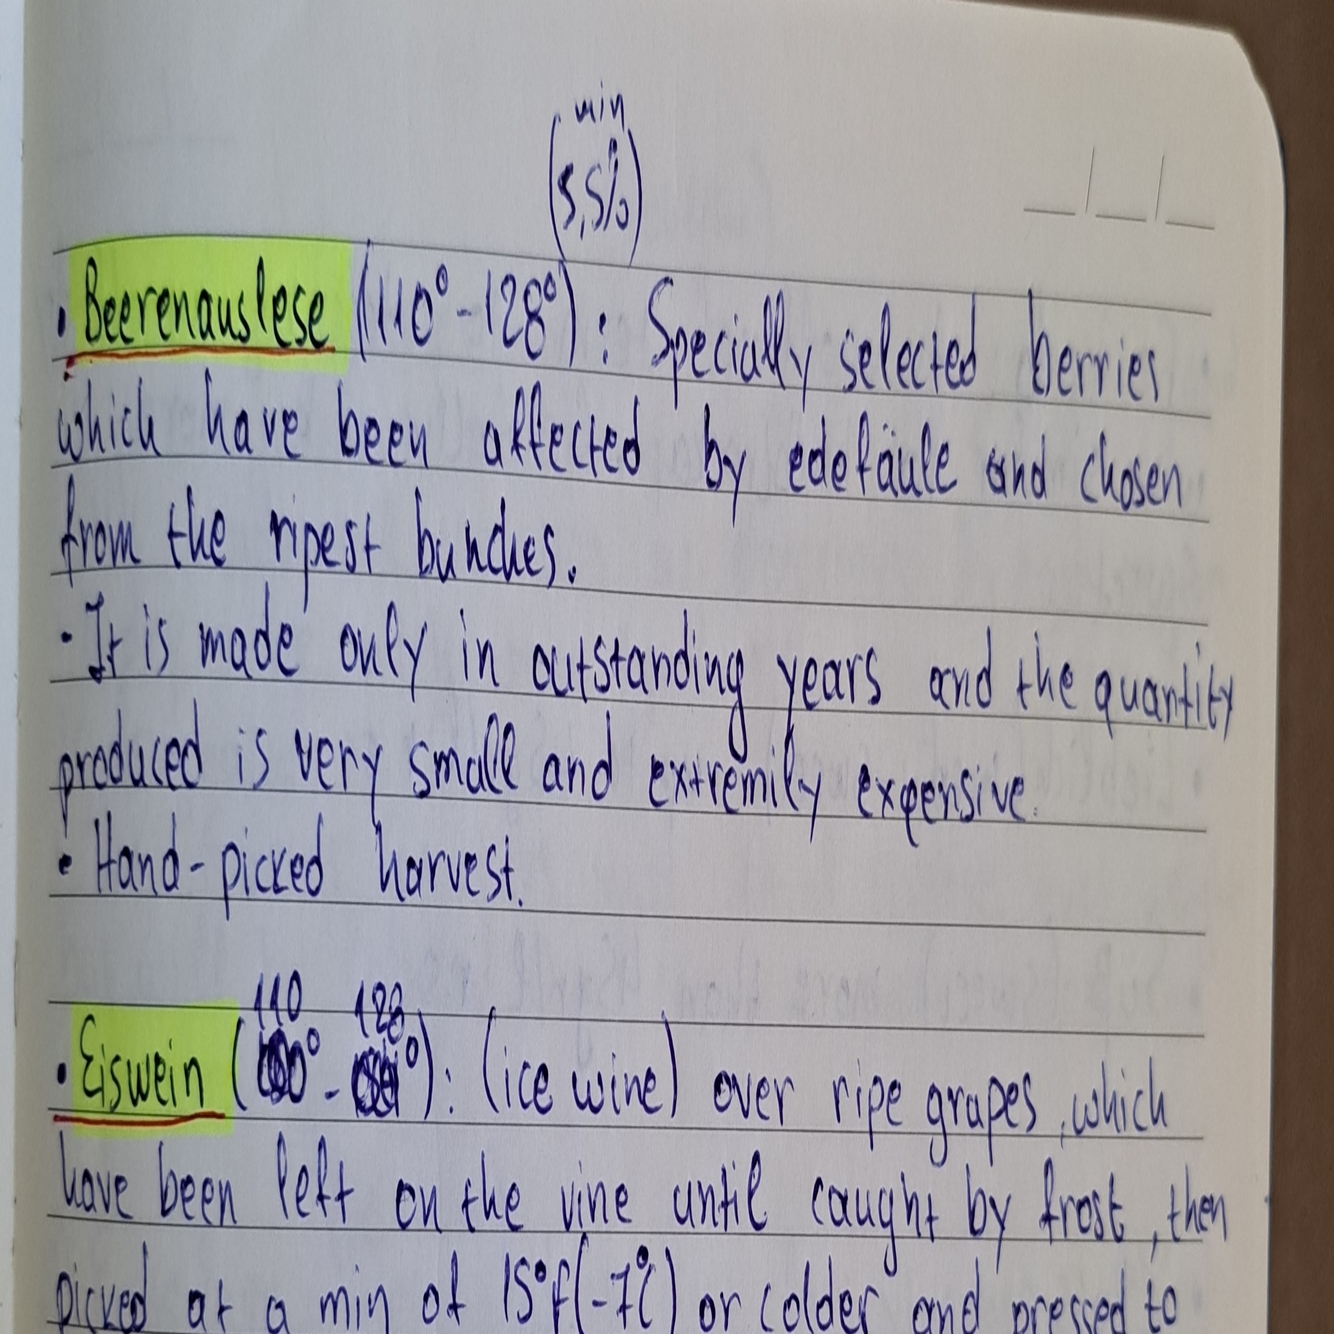 min
(5,5%)
• Beerenauslese (110° - 128°) : Specially selected berries
which have been affected by edefäule and chosen
from the ripest bunches.
- It is made only in outstanding years and the quantity
produced is very small and extremily expensive.
• Hand-picked harvest.
110 128
• Eiswein ( ° - °) : (ice wine) over ripe grapes, which
have been left on the vine until caught by frost, then
picked at a min of 15°f(-7°C) or colder and pressed to